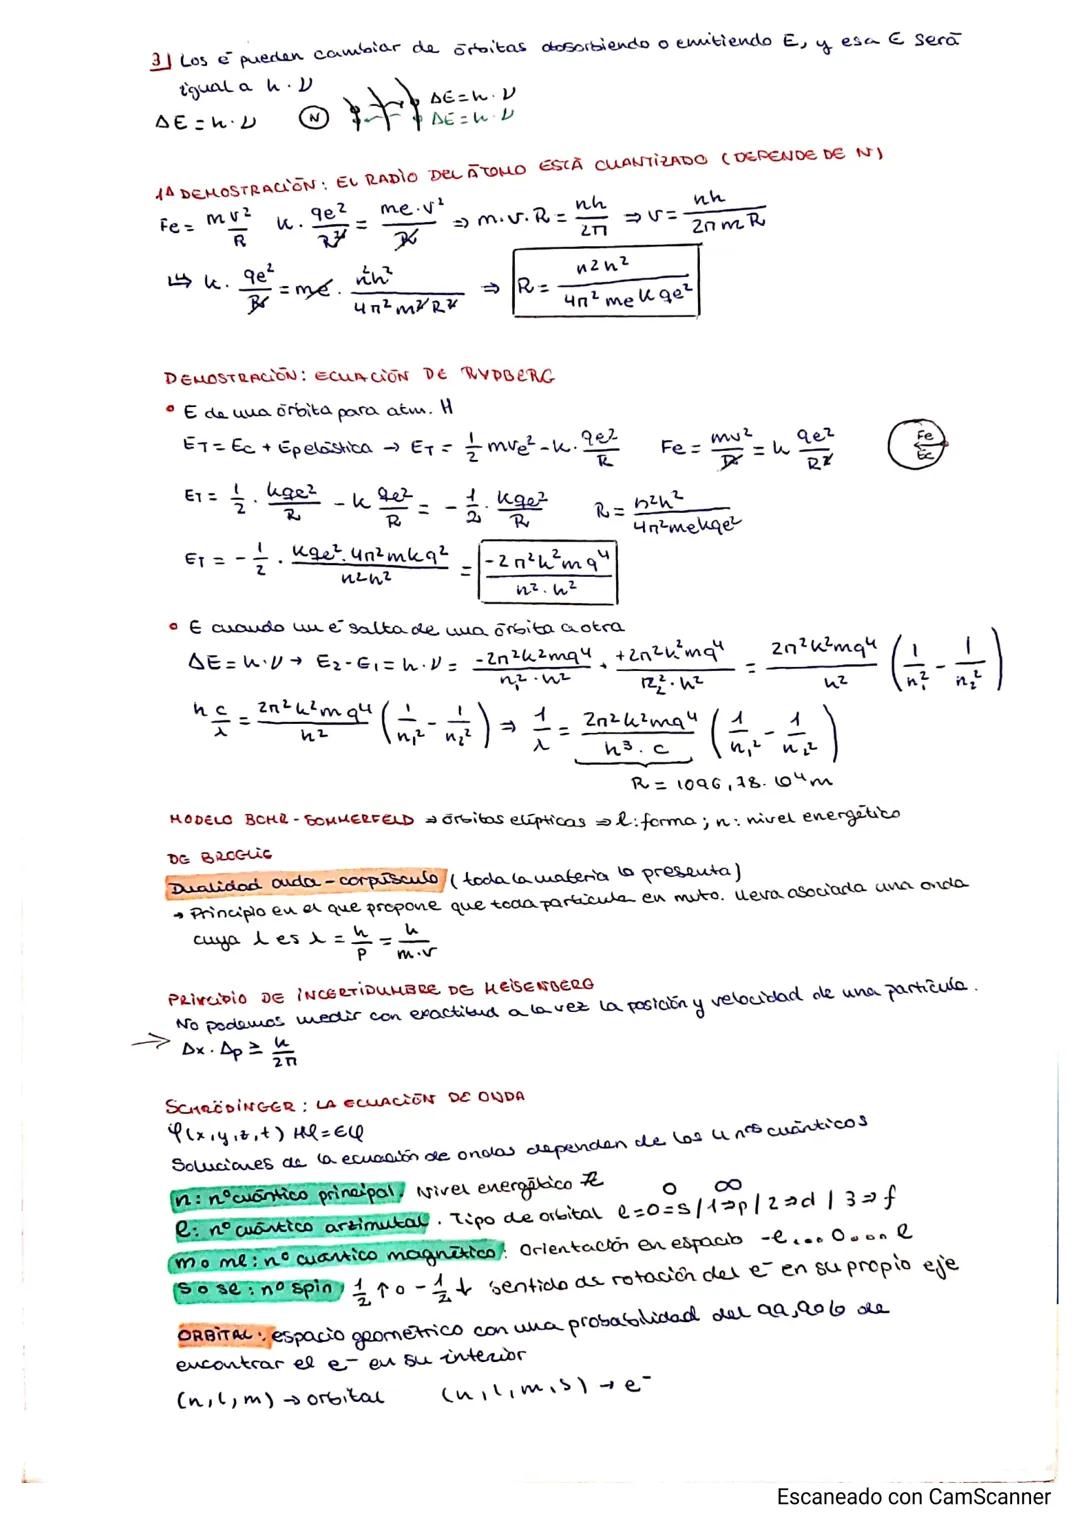 3) Los e⁻ pueden cambiar de órbitas absorbiendo o emitiendo E, y esa E será
igual a h·ν
ΔE = h·ν   N   ΔE = h·ν
ΔE = h·ν
1ª DEMOSTRACIÓN: EL RADIO DEL ÁTOMO ESTÁ CUANTIZADO (DEPENDE DE N)
Fe = mv²/R   k·qe²/R² = me·v²/R ⇒ m·v·R = nh/2π ⇒ v = nh/2πmR
↳ k·qe²/R = me·n²h²/4π²m²R² ⇒ R = n²h²/4π²mekqe²
DEMOSTRACIÓN: ECUACIÓN DE RYDBERG
• E de una órbita para atm. H
ET = Ec + Epelástica → ET = 1/2 mve² - k·qe²/R   Fe = mv²/R = k qe²/R²   Fe Ec
ET = 1/2 · kqe²/R - k qe²/R = -1/2 · kqe²/R   R = n²h²/4π²mekqe²
ET = -1/2 · kqe²·4π²mkq²/n²h² = -2π²k²mq⁴/n²·h²
• E cuando un e⁻ salta de una órbita a otra
ΔE = h·ν → E2-E1 = h·ν = -2π²k²mq⁴/n₁²·h² + +2π²k²mq⁴/n₂²·h² = 2π²k²mq⁴/h² (1/n₁² - 1/n₂²)
h c/λ = 2π²k²mq⁴/h² (1/n₁² - 1/n₂²) ⇒ 1/λ = 2π²k²mq⁴/h³·c (1/n₁² - 1/n₂²)
R = 1096,78·10⁴m
MODELO BOHR-SOMMERFELD ⇒ órbitas elípticas ⇒ l: forma; n: nivel energético
DE BROGLIE
Dualidad onda-corpúsculo (toda la materia lo presenta)
→ Principio en el que propone que toda partícula en mvto. lleva asociada una onda
cuya λ es λ = h/p = h/m·v
PRINCIPIO DE INCERTIDUMBRE DE HEISENBERG
No podemos medir con exactitud a la vez la posición y velocidad de una partícula.
→ Δx·Δp ≥ h/2π
SCHRÖDINGER: LA ECUACIÓN DE ONDA
φ(x,y,z,t) Hφ=Eφ
Soluciones de la ecuación de ondas dependen de los 4 nºs cuánticos
n: nº cuántico principal. Nivel energético
l: nº cuántico azimutal. Tipo de orbital l=0⇒s/1⇒p/2⇒d/3⇒f   O ∞
m o ml: nº cuántico magnético: Orientación en espacio -l...0...l
s o se: nº spin 1/2 ↑ o -1/2 ↓ sentido de rotación del e⁻ en su propio eje
ORBITAL: espacio geométrico con una probabilidad del 99,90% de
encontrar el e⁻ en su interior
(n,l,m) → orbital   (n,l,m,s) → e⁻
Escaneado con CamScanner